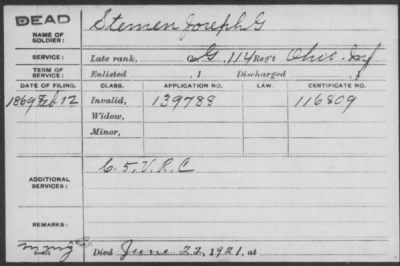 DEAD
NAME OF SOLDIER: Stemen Joseph G
SERVICE: Late rank, Co G, 114 Reg't Ohio Inf
TERM OF SERVICE: Enlisted , 1 Discharged , 1
DATE OF FILING. CLASS. APPLICATION NO. LAW. CERTIFICATE NO.
1869 Feb 12 Invalid, 139788 116809
Widow,
Minor,
ADDITIONAL SERVICES: C. 5, V. R. C
REMARKS:
Died June 22, 1921, at